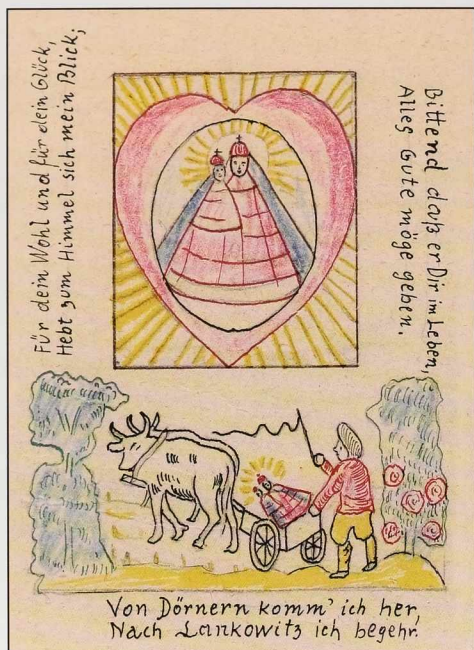 Für dein Wohl und für dein Glück,
Hebt zum Himmel sich mein Blick;
Bittend daß er Dir im Leben,
Alles Gute möge geben.
Von Dörnern komm' ich her,
Nach Lankowitz ich begehr.